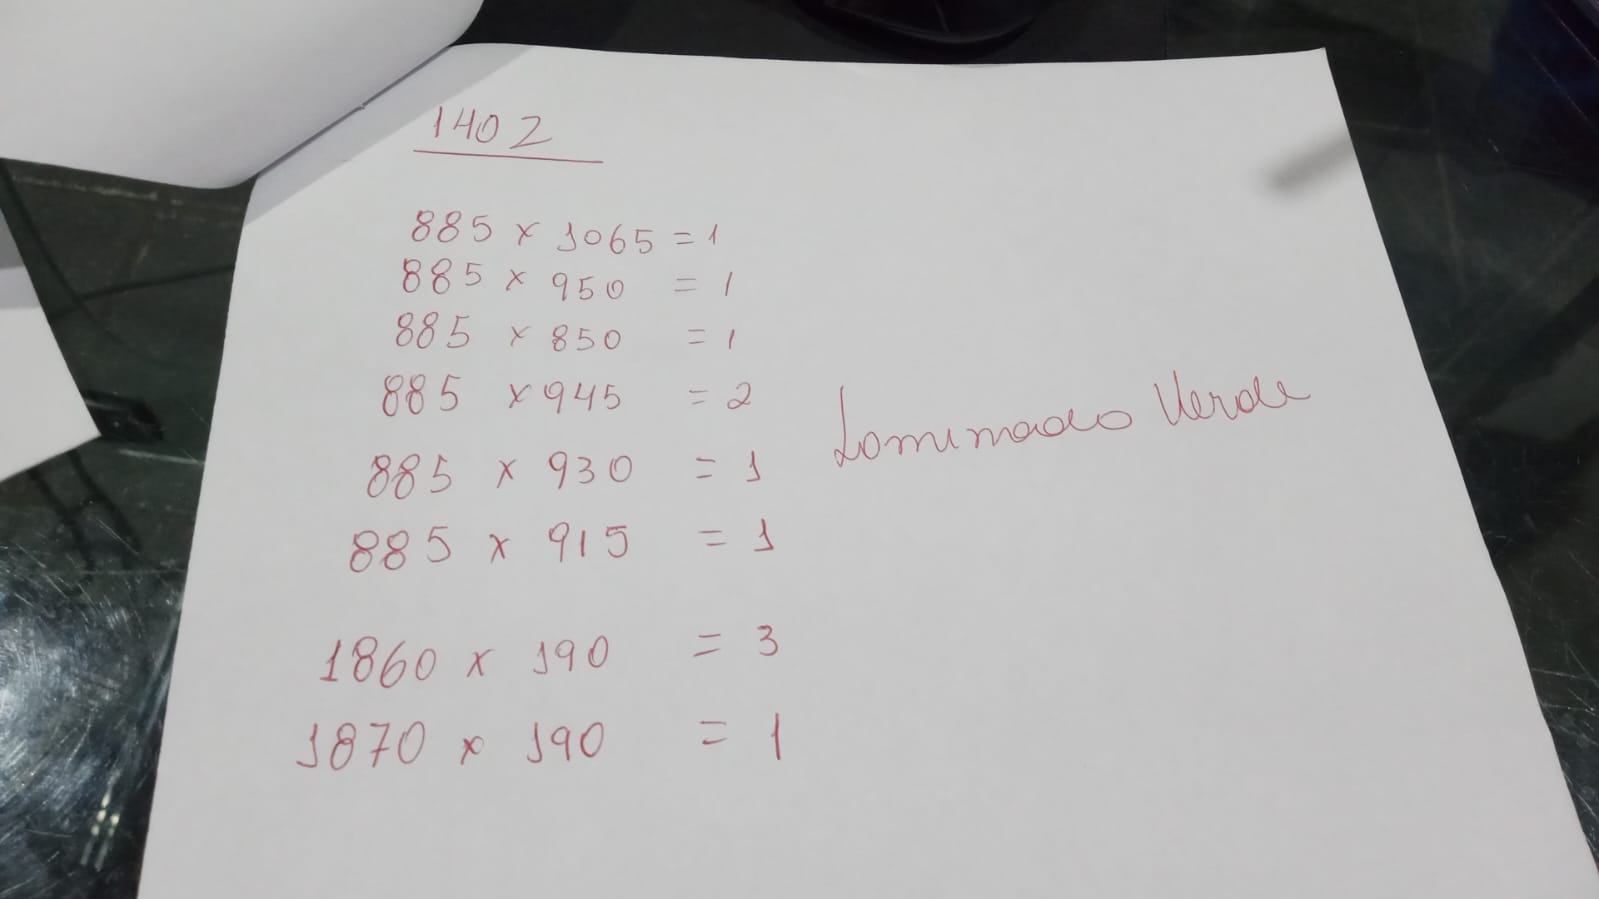 1402
885 x 1065 = 1
885 x 950 = 1
885 x 850 = 1
885 x 945 = 2
Laminado Verde
885 x 930 = 1
885 x 915 = 1
1860 x 190 = 3
1870 x 190 = 1